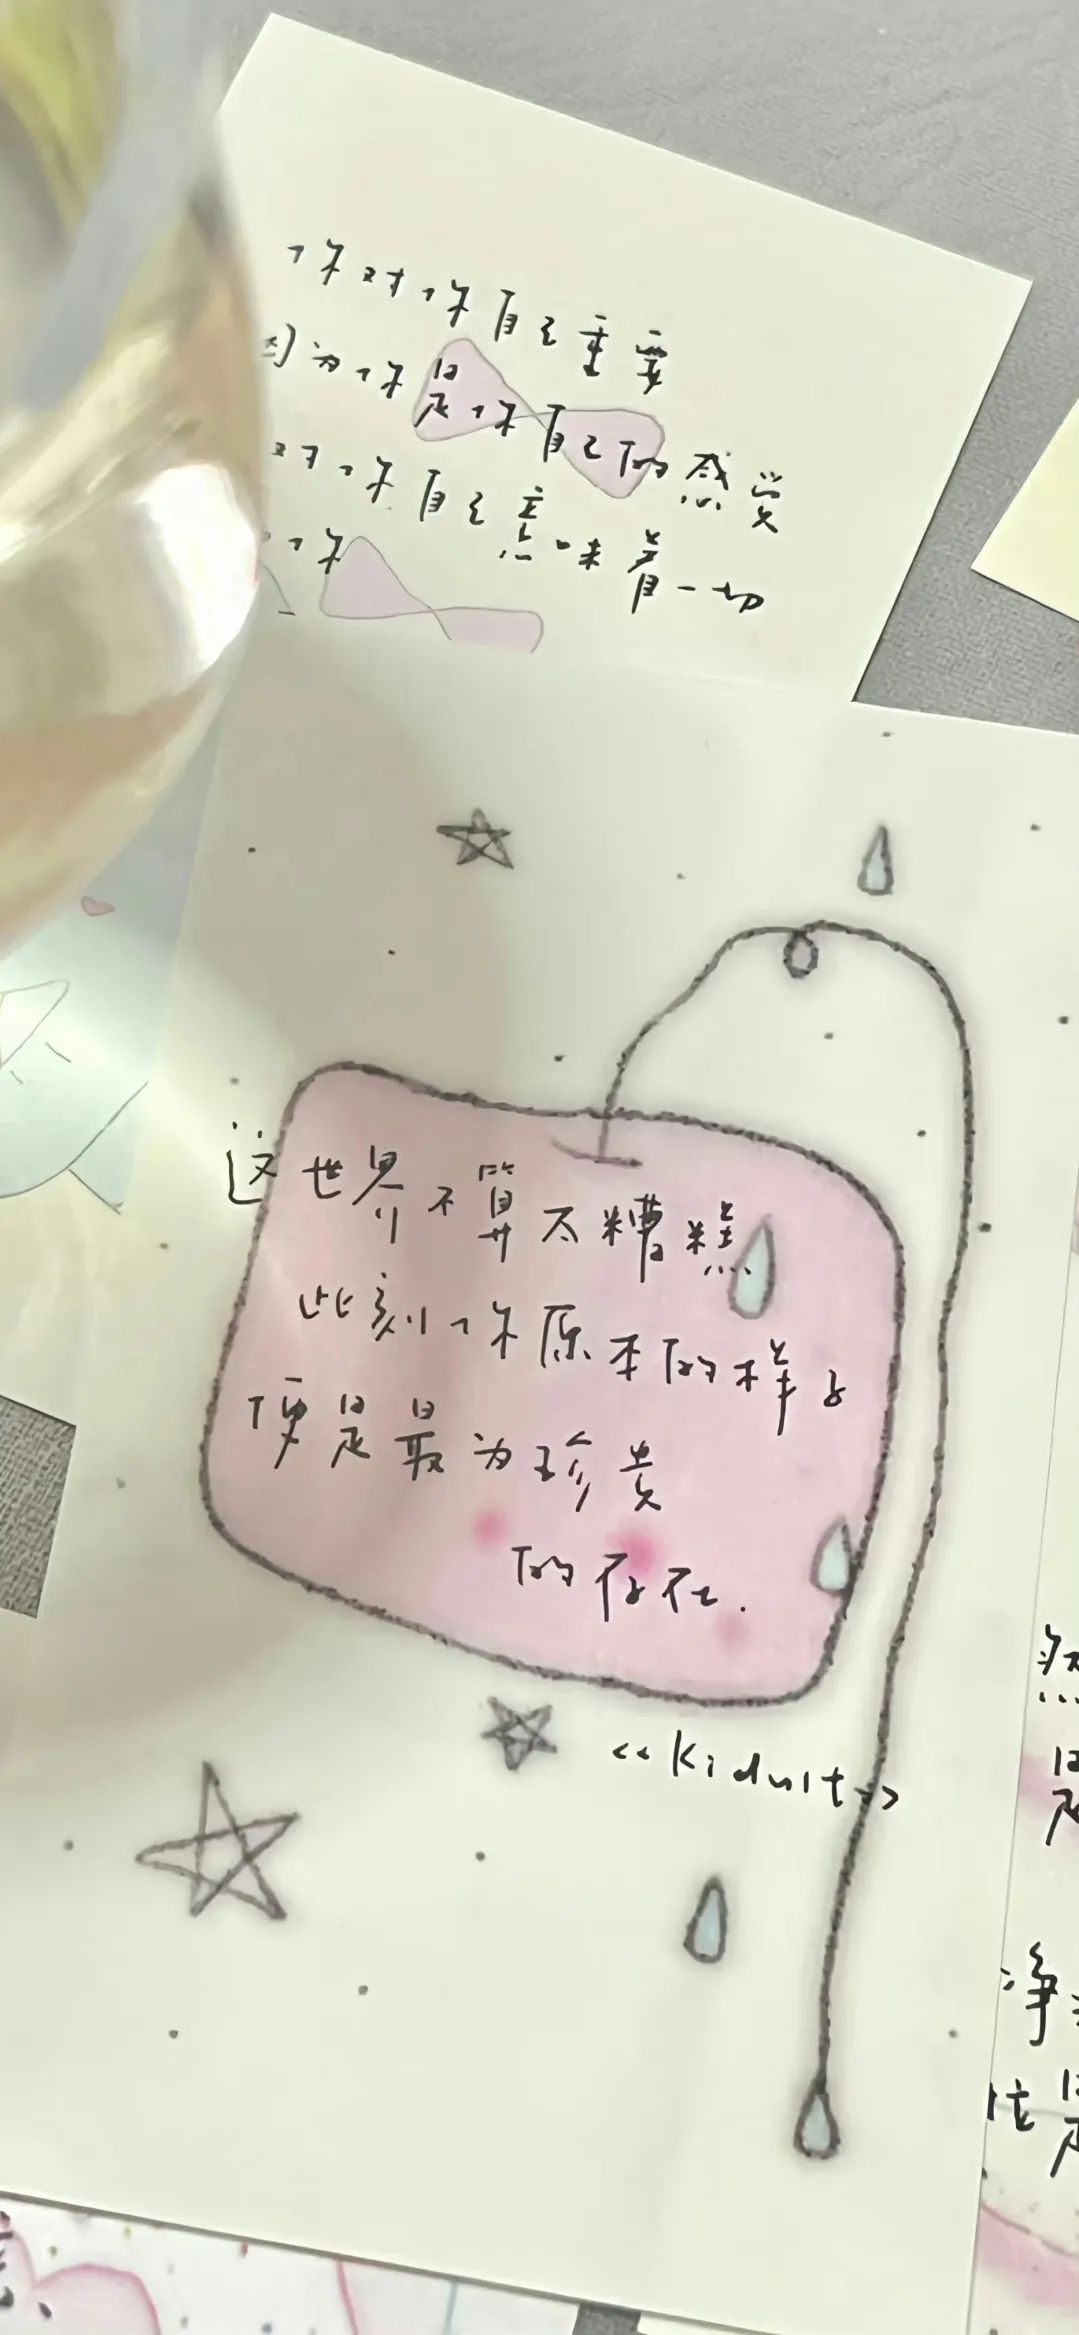 你对你自己重要
因为你是你自己的感受
对你自己意味着一切
你
这世界不算太糟糕
此刻你原本的样子
便是最为珍贵
的存在.
<<Kidult>>
然
是
净
性是